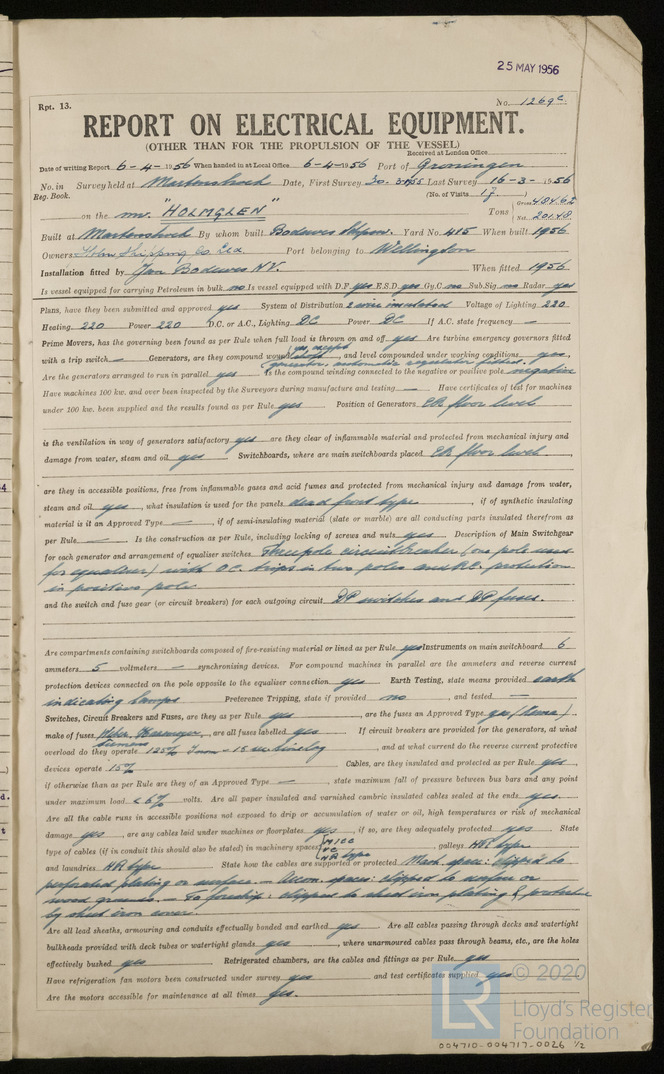 25 MAY 1956
Rpt. 13.
No. 1269c.
REPORT ON ELECTRICAL EQUIPMENT.
(OTHER THAN FOR THE PROPULSION OF THE VESSEL)
Received at London Office
Date of writing Report 6-4-1956 When handed in at Local Office 6-4-1956 Port of Groningen
No. in Reg. Book. Survey held at Martenshoek Date, First Survey 30. Last Survey 16-3-1956
(No. of Visits 17)
on the mv. "HOLMGLEN" Tons Gross 484.62 Net 201.48
Built at Martenshoek By whom built Bodewes Yard No. 415 When built 1956
Owners Holm Shipping Co Ltd. Port belonging to Wellington
Installation fitted by Jan Bodewes N.V. When fitted 1956
Is vessel equipped for carrying Petroleum in bulk no Is vessel equipped with D.F. yes E.S.D. yes Gy.C no Sub.Sig no Radar yes
Plans, have they been submitted and approved yes System of Distribution 2 wire insulated Voltage of Lighting 220
Heating. 220 Power 220 D.C. or A.C., Lighting DC Power DC If A.C. state frequency —
Prime Movers, has the governing been found as per Rule when full load is thrown on and off yes Are turbine emergency governors fitted
with a trip switch — Generators, are they compound wound yes, except , and level compounded under working conditions yes,
generator, automatic regulator fitted.
Are the generators arranged to run in parallel yes Is the compound winding connected to the negative or positive pole negative
Have machines 100 kw. and over been inspected by the Surveyors during manufacture and testing — Have certificates of test for machines
under 100 kw. been supplied and the results found as per Rule yes Position of Generators ER floor level
is the ventilation in way of generators satisfactory yes are they clear of inflammable material and protected from mechanical injury and
damage from water, steam and oil yes Switchboards, where are main switchboards placed ER floor level
are they in accessible positions, free from inflammable gases and acid fumes and protected from mechanical injury and damage from water,
steam and oil yes, what insulation is used for the panels dead front type, if of synthetic insulating
material is it an Approved Type —, if of semi-insulating material (slate or marble) are all conducting parts insulated therefrom as
per Rule — Is the construction as per Rule, including locking of screws and nuts yes Description of Main Switchgear
for each generator and arrangement of equaliser switches. Three pole circuitbreaker (one pole used
for equaliser) with O.C. trips in two poles and R.C. protection
in positive pole
and the switch and fuse gear (or circuit breakers) for each outgoing circuit DP switches and DP fuses.
Are compartments containing switchboards composed of fire-resisting material or lined as per Rule yes Instruments on main switchboard 6
ammeters 5 voltmeters — synchronising devices. For compound machines in parallel are the ammeters and reverse current
protection devices connected on the pole opposite to the equaliser connection yes Earth Testing, state means provided earth
indicating lamps Preference Tripping, state if provided no, and tested —
Switches, Circuit Breakers and Fuses, are they as per Rule yes, are the fuses an Approved Type yes
make of fuses Weber, Hazemeyer, Siemens are all fuses labelled yes If circuit breakers are provided for the generators, at what
overload do they operate 125% , and at what current do the reverse current protective
devices operate 15% Cables, are they insulated and protected as per Rule yes,
if otherwise than as per Rule are they of an Approved Type —, state maximum fall of pressure between bus bars and any point
under maximum load <6% volts. Are all paper insulated and varnished cambric insulated cables sealed at the ends yes.
Are all the cable runs in accessible positions not exposed to drip or accumulation of water or oil, high temperatures or risk of mechanical
damage yes, are any cables laid under machines or floorplates yes, if so, are they adequately protected yes State
type of cables (if in conduit this should also be stated) in machinery spaces VC HR type, galleys HR type
and laundries HR type State how the cables are supported or protected Mach. space: clipped to
perforated plating or surface. — Accom. spaces: clipped to surface or
wood grounds. — To foreship: clipped to sheet iron plating & protected
by sheet iron cover.
Are all lead sheaths, armouring and conduits effectually bonded and earthed yes Are all cables passing through decks and watertight
bulkheads provided with deck tubes or watertight glands yes, where unarmoured cables pass through beams, etc., are the holes
effectively bushed yes Refrigerated chambers, are the cables and fittings as per Rule yes
Have refrigeration fan motors been constructed under survey yes and test certificates supplied yes
Are the motors accessible for maintenance at all times yes.
© 2020
LR
Lloyd's Register
Foundation
004710-004717-0026 1/2